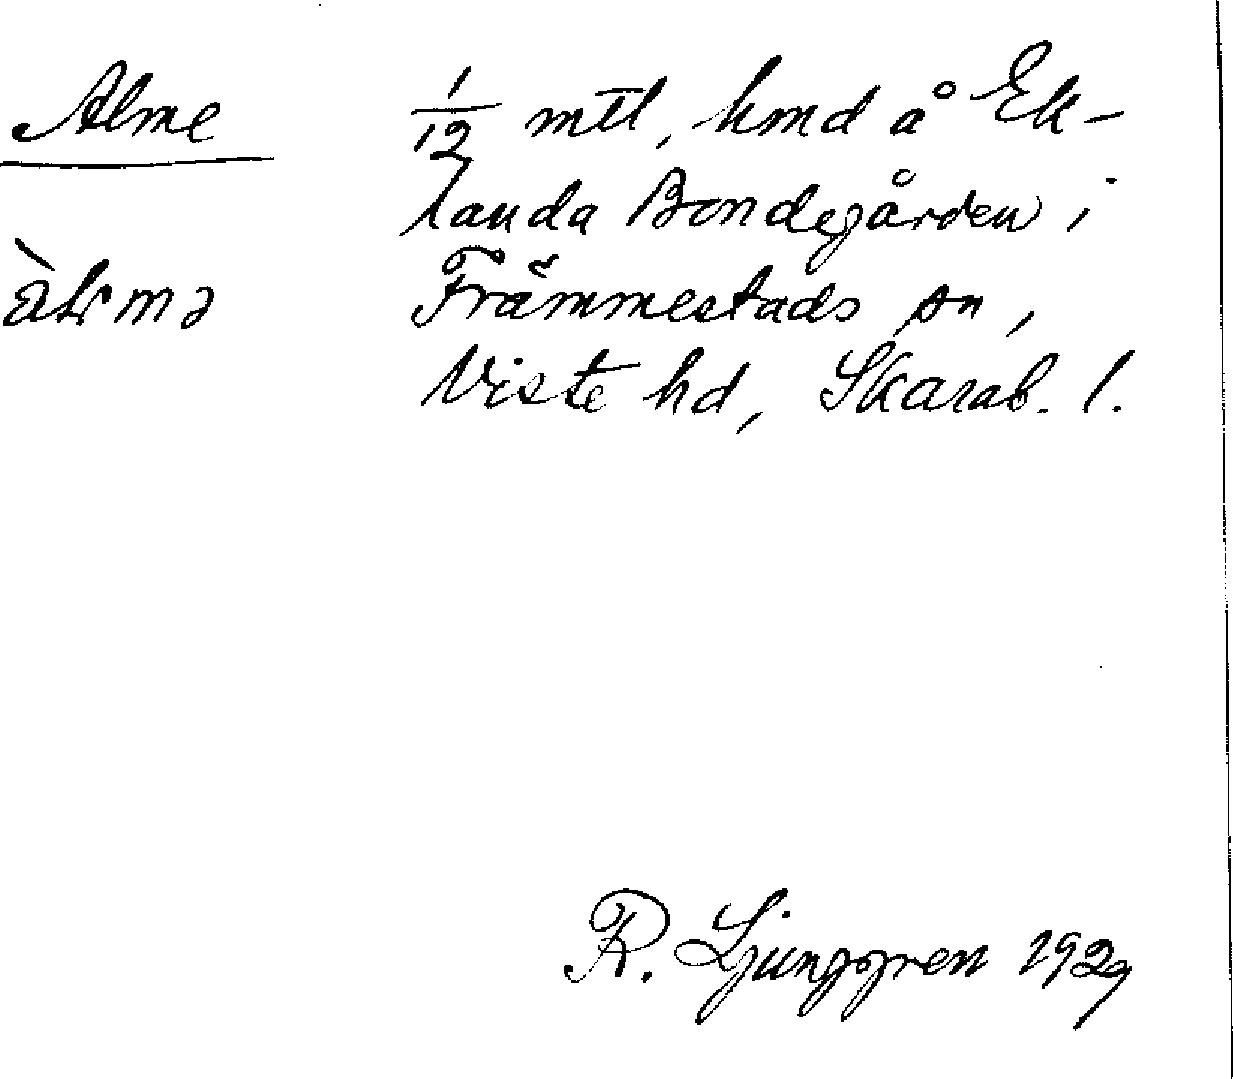 Alme
1/12 mtl, hmd å Ek-
landa Bondegården i
Främmestads sn,
Viste hd, Skarab. l.
R. Ljunggren 1929